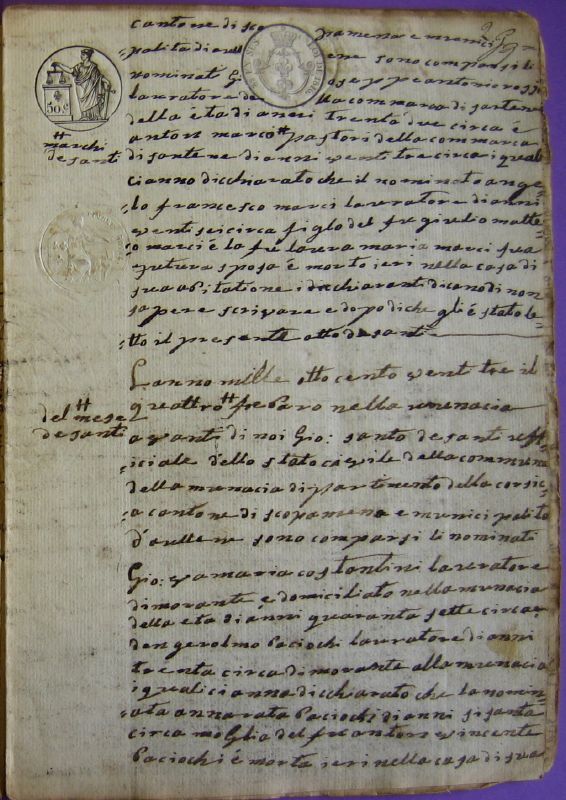 cantone di sco pamena e munici=
palita di aull ene sono comparsi li
nominati Gi oseppe antonio rossi
50 c.
lavoratore de lla commarca di sartene
della età di anni trenta due circa é
anton marco # pastori della commarca
# marchi
de santi
di sartene di anni vent tre circa i quali
ci anno dicchiarato che il nominato ange
lo francesco marci lavoratore di anni
vent sei circa figlo del fu giudio matte
o marci é la fu laura maria marci sua
futura sposa é morto ieri nella casa di
sua abitatione i dicchiaranti dicano di non
sapere scrivare e dopo di che gli é stato le
tto il presente atto de santi
L'anno mille otto cento vent tre il
quattro # frebaro nella munacia
del # mese
de santi
avanti di noi Gio: santo de santi uff
iciale dello stato civile della communa
della munacia dipartimento della corsic
a cantone di scopamena e municipalita
d'aullene sono comparsi li nominati
Gio: vamaria costantini lavoratore
dimorante e domiciliato nella munacia
della età di anni quaranta sette circa e
don gerolmo Paciochi lavoratore di anni
trenta circa dimorante alla munacia
i quali ci anno dicchiarato che la nomin
ata annarata Paciochi di anni sisanta
circa moglia del fu antono vincente
Paciochi é morta ieri nella casa di sua